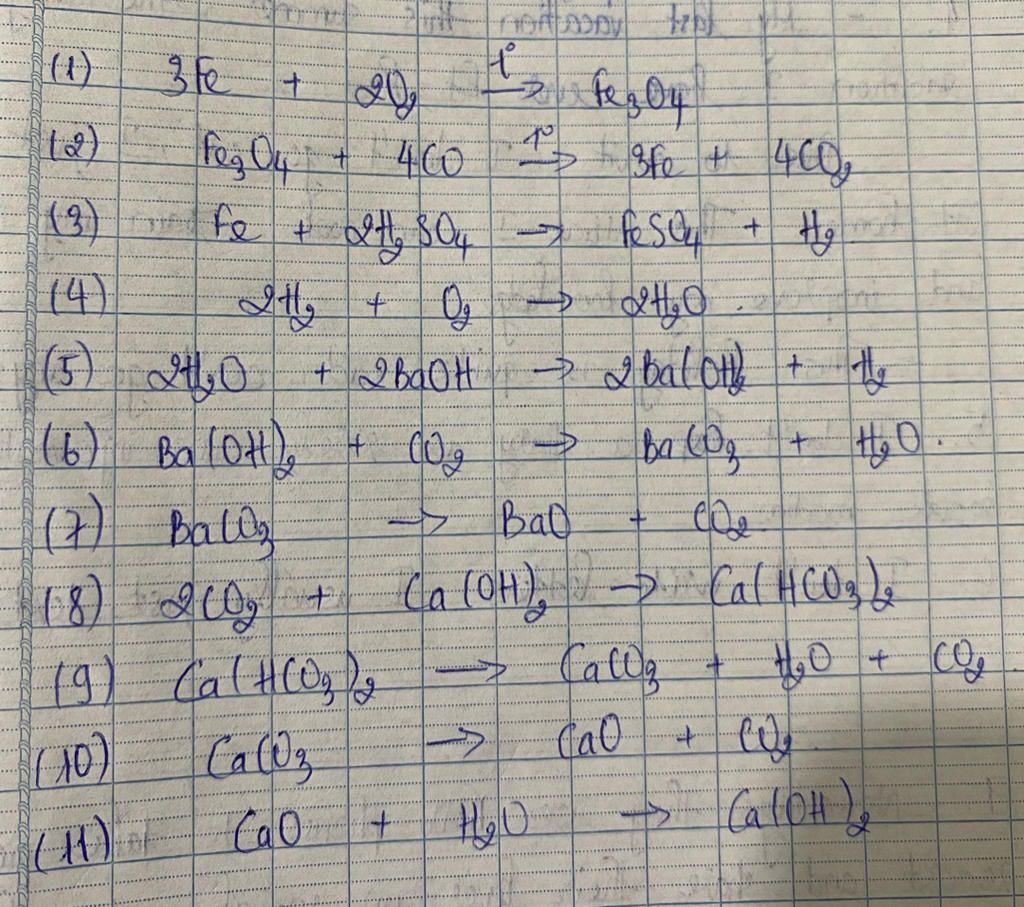 (1) 3Fe + 2O₂ —t°→ Fe₃O₄
(2) Fe₃O₄ + 4CO —t°→ 3Fe + 4CO₂
(3) Fe + 2H₂SO₄ → FeSO₄ + H₂
(4) 2H₂ + O₂ → 2H₂O.
(5) 2H₂O + 2BaOH → 2Ba(OH)₂ + H₂
(6) Ba(OH)₂ + CO₂ → BaCO₃ + H₂O.
(7) BaCO₃ → BaO + CO₂
(8) 2CO₂ + Ca(OH)₂ → Ca(HCO₃)₂
(9) Ca(HCO₃)₂ → CaCO₃ + H₂O + CO₂
(10) CaCO₃ → CaO + CO₂
(11) CaO + H₂O → Ca(OH)₂